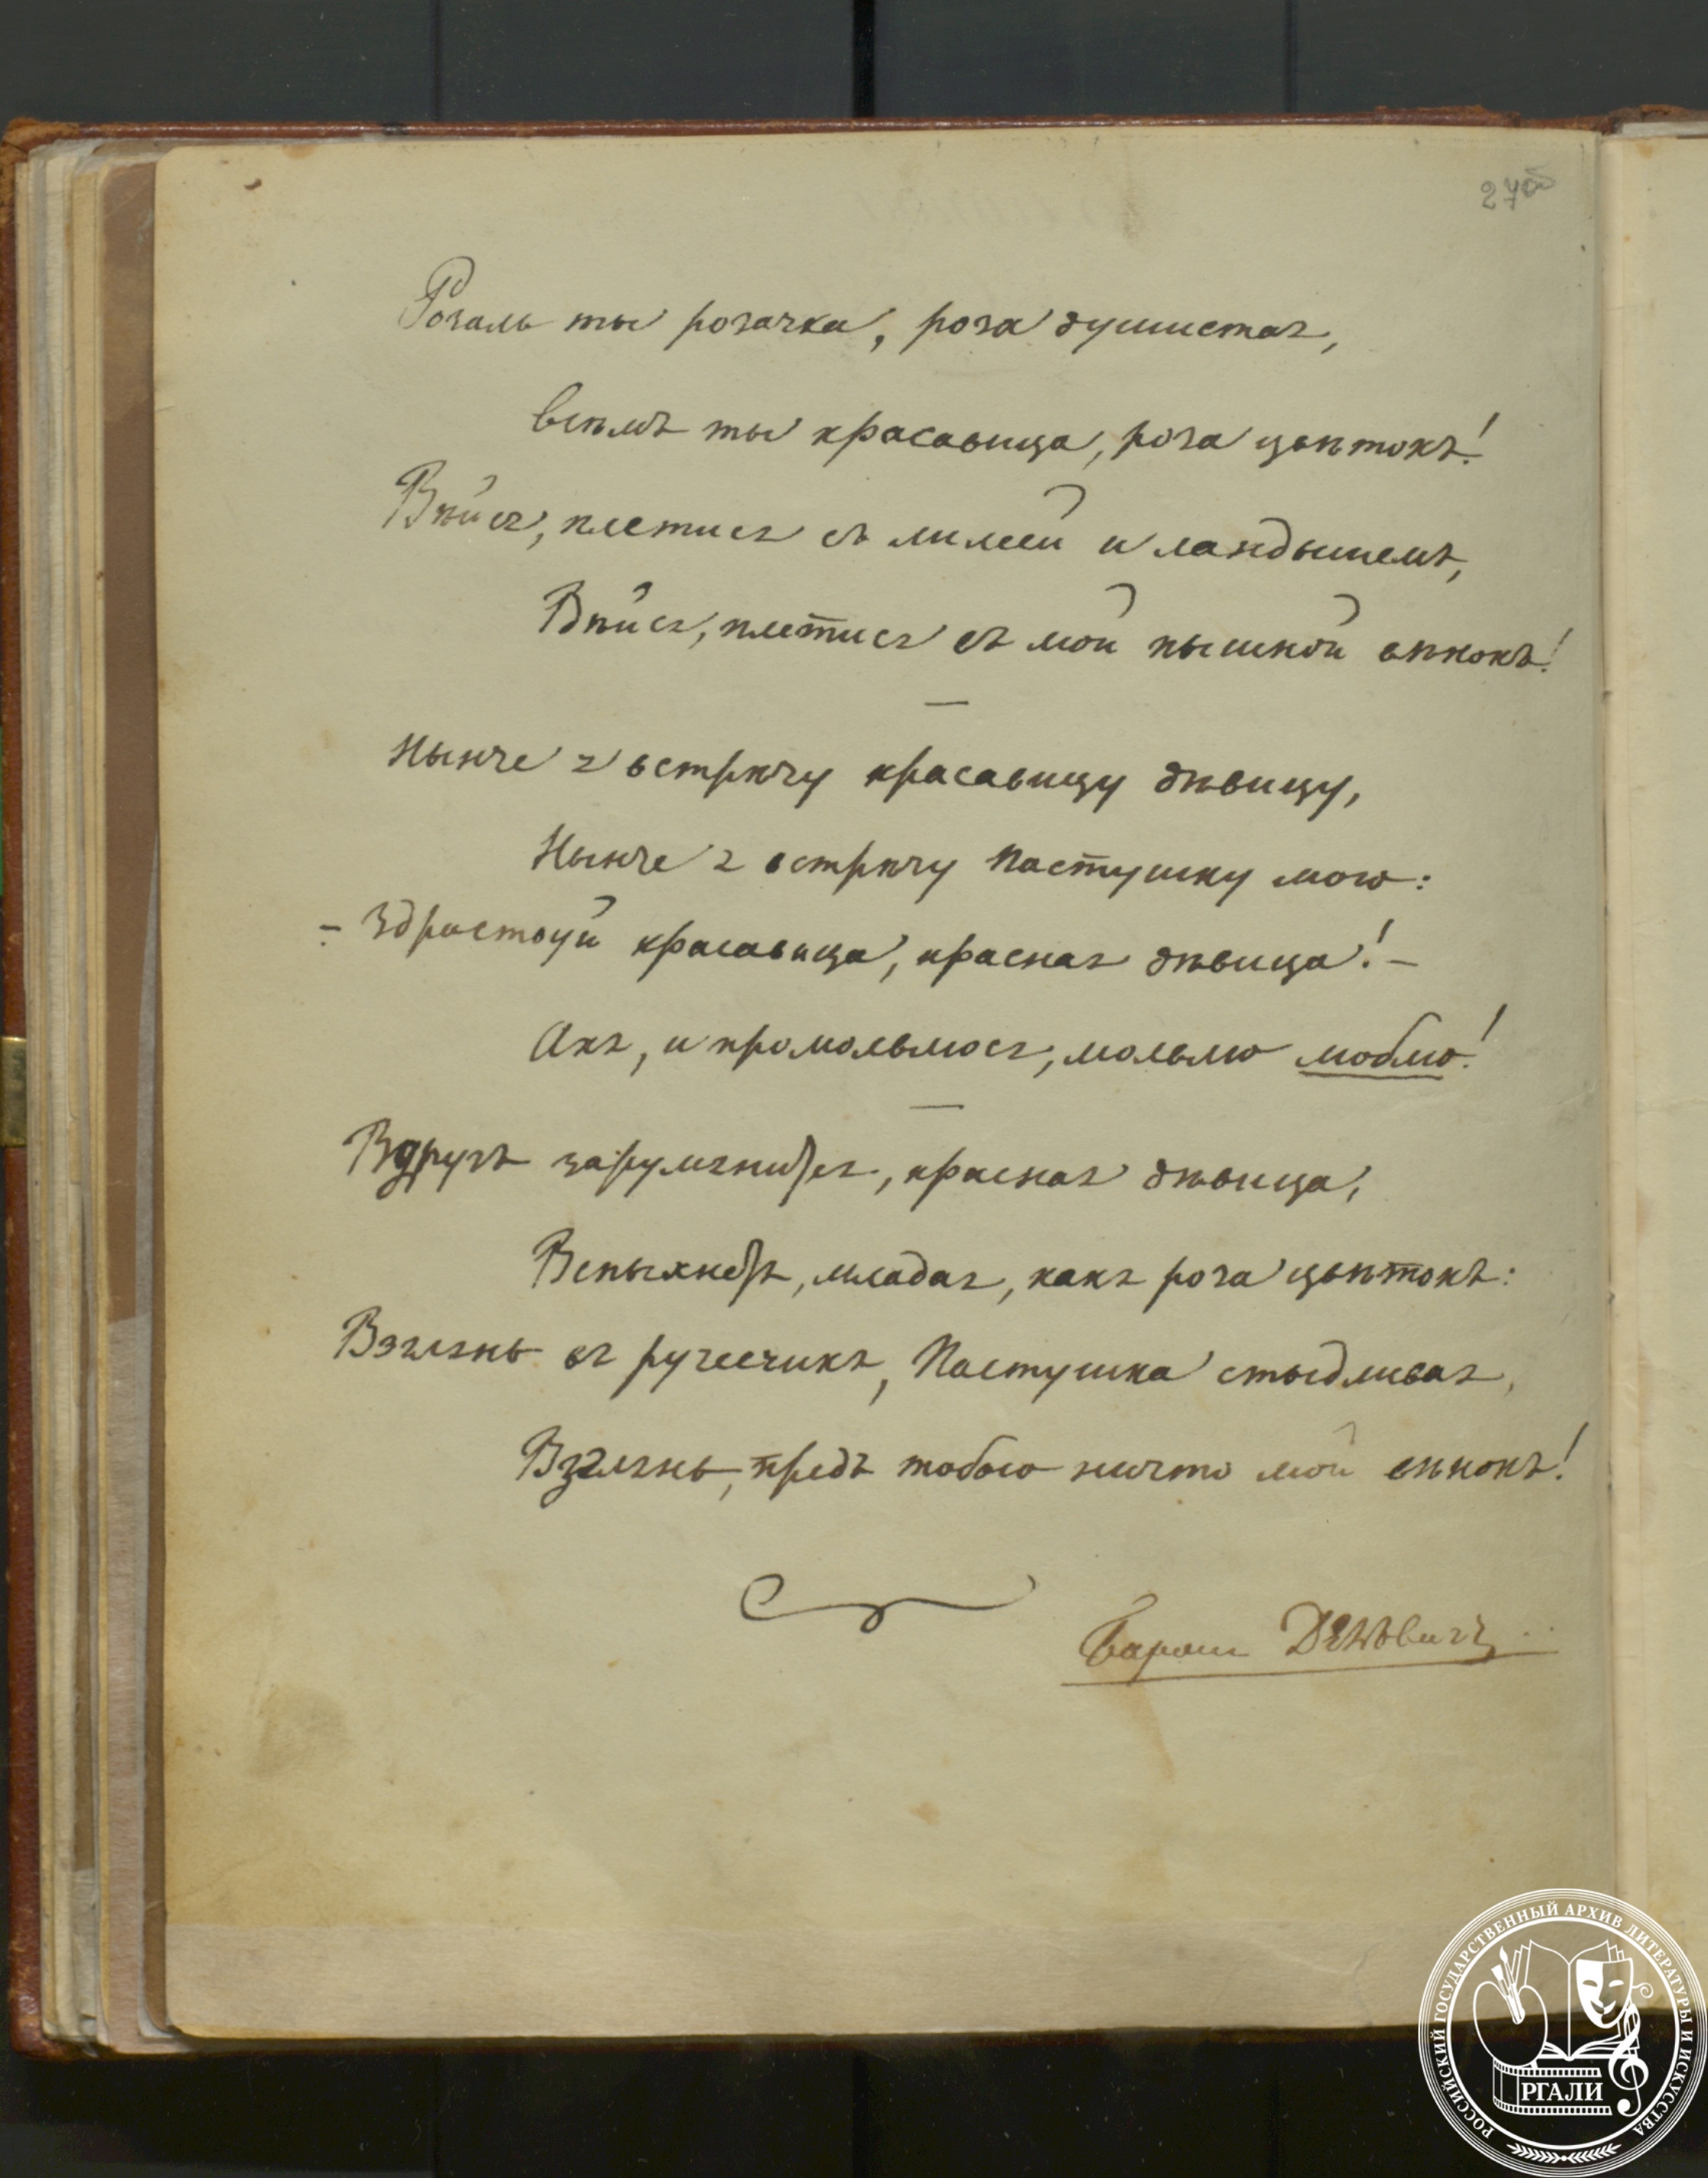 27об
Розаль ты розачка, роза душистая,
всѣмъ ты красавица, роза цвѣтокъ!
Вѣйся, плетися съ лилеей и ландышемъ,
Вѣйся, плетися въ мой пышной вѣнокъ!
Нынче я встрѣчу красавицу дѣвицу,
Нынче я встрѣчу пастушку мою:
- Здраствуй красавица, красная дѣвица! -
Ахъ, и промольлюсь, мольлю люблю!
Вдругъ зарумянится, красная дѣвица,
Вспыхнетъ, младая, какъ роза цвѣтокъ:
Взглянь въ ручеечикъ, Пастушка стыдливая,
Взглянь, предъ тобою ничто мой вѣнокъ!
Баронъ Дельвигъ
РОССИЙСКИЙ ГОСУДАРСТВЕННЫЙ АРХИВ ЛИТЕРАТУРЫ И ИСКУССТВА
РГАЛИ